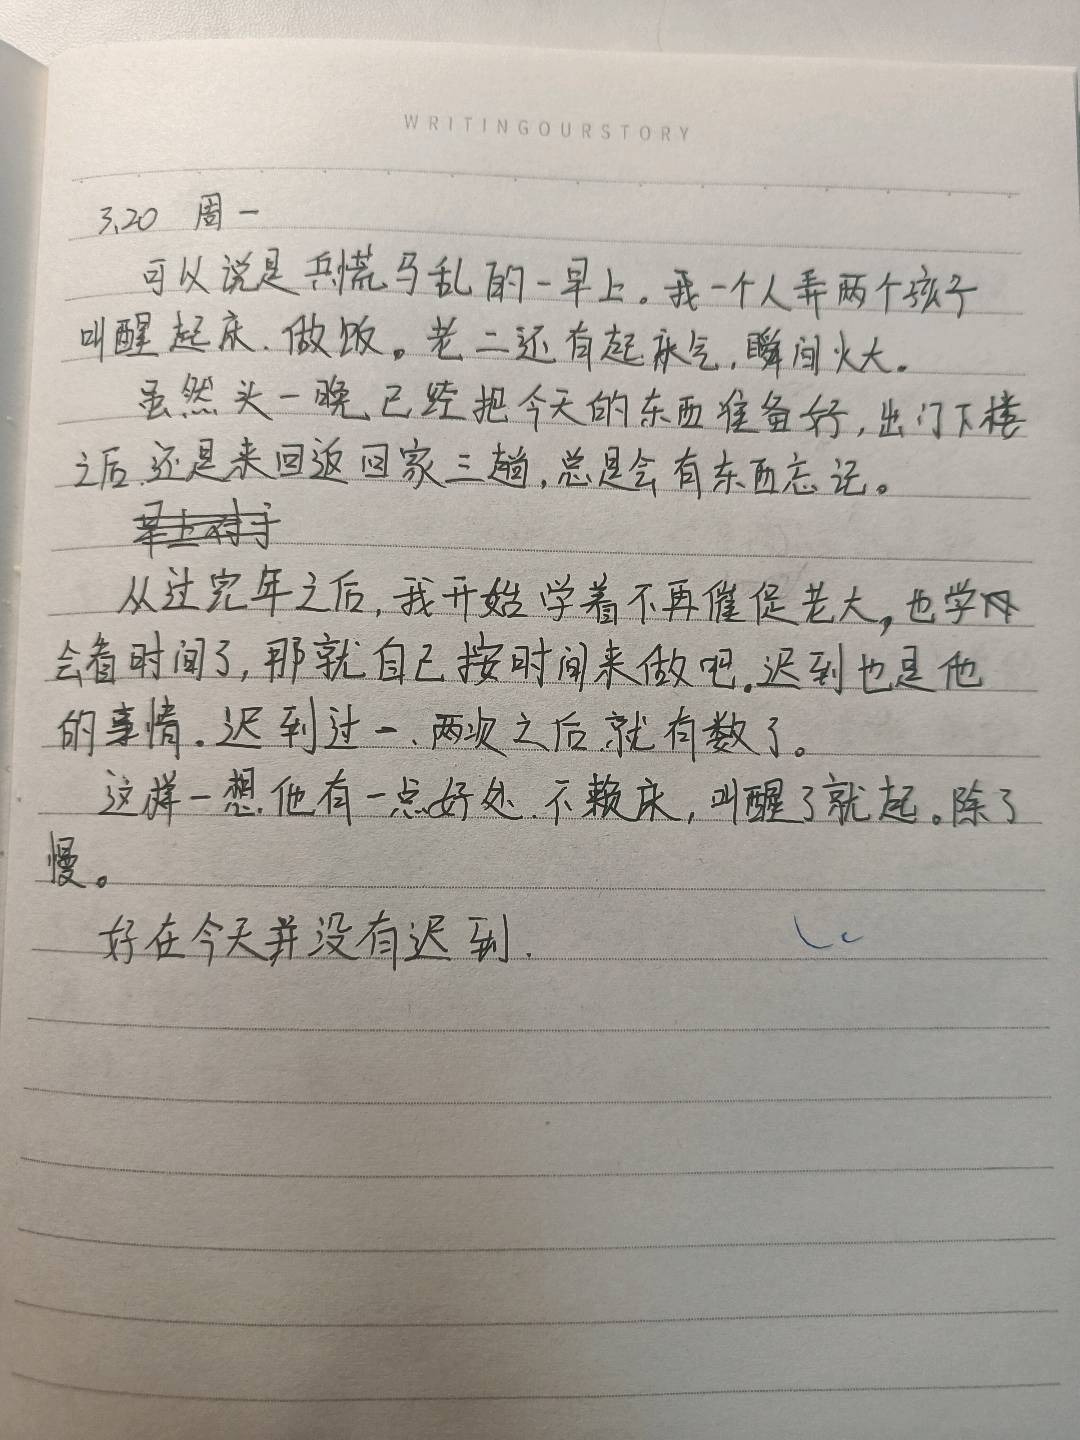 WRITINGOURSTORY
3.20 周一
可以说是兵慌马乱的一早上。我一个人弄两个孩子
叫醒起床、做饭。老二还有起床气，瞬间火大。
虽然头一晚已经把今天的东西准备好，出门下楼
之后还是来回返回家三趟，总是会有东西忘记。
早上对于
从过完年之后，我开始学着不再催促老大，也学
会看时间了，那就自己按时间来做吧。迟到也是他
的事情。迟到过一、两次之后就有数了。
这样一想他有一点好处、不赖床，叫醒了就起。除了
慢。
好在今天并没有迟到.